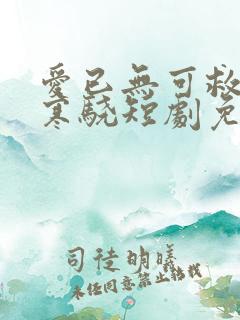 愛已無可救
寒驍短劇免
司徒明曦
未经同意禁止转载